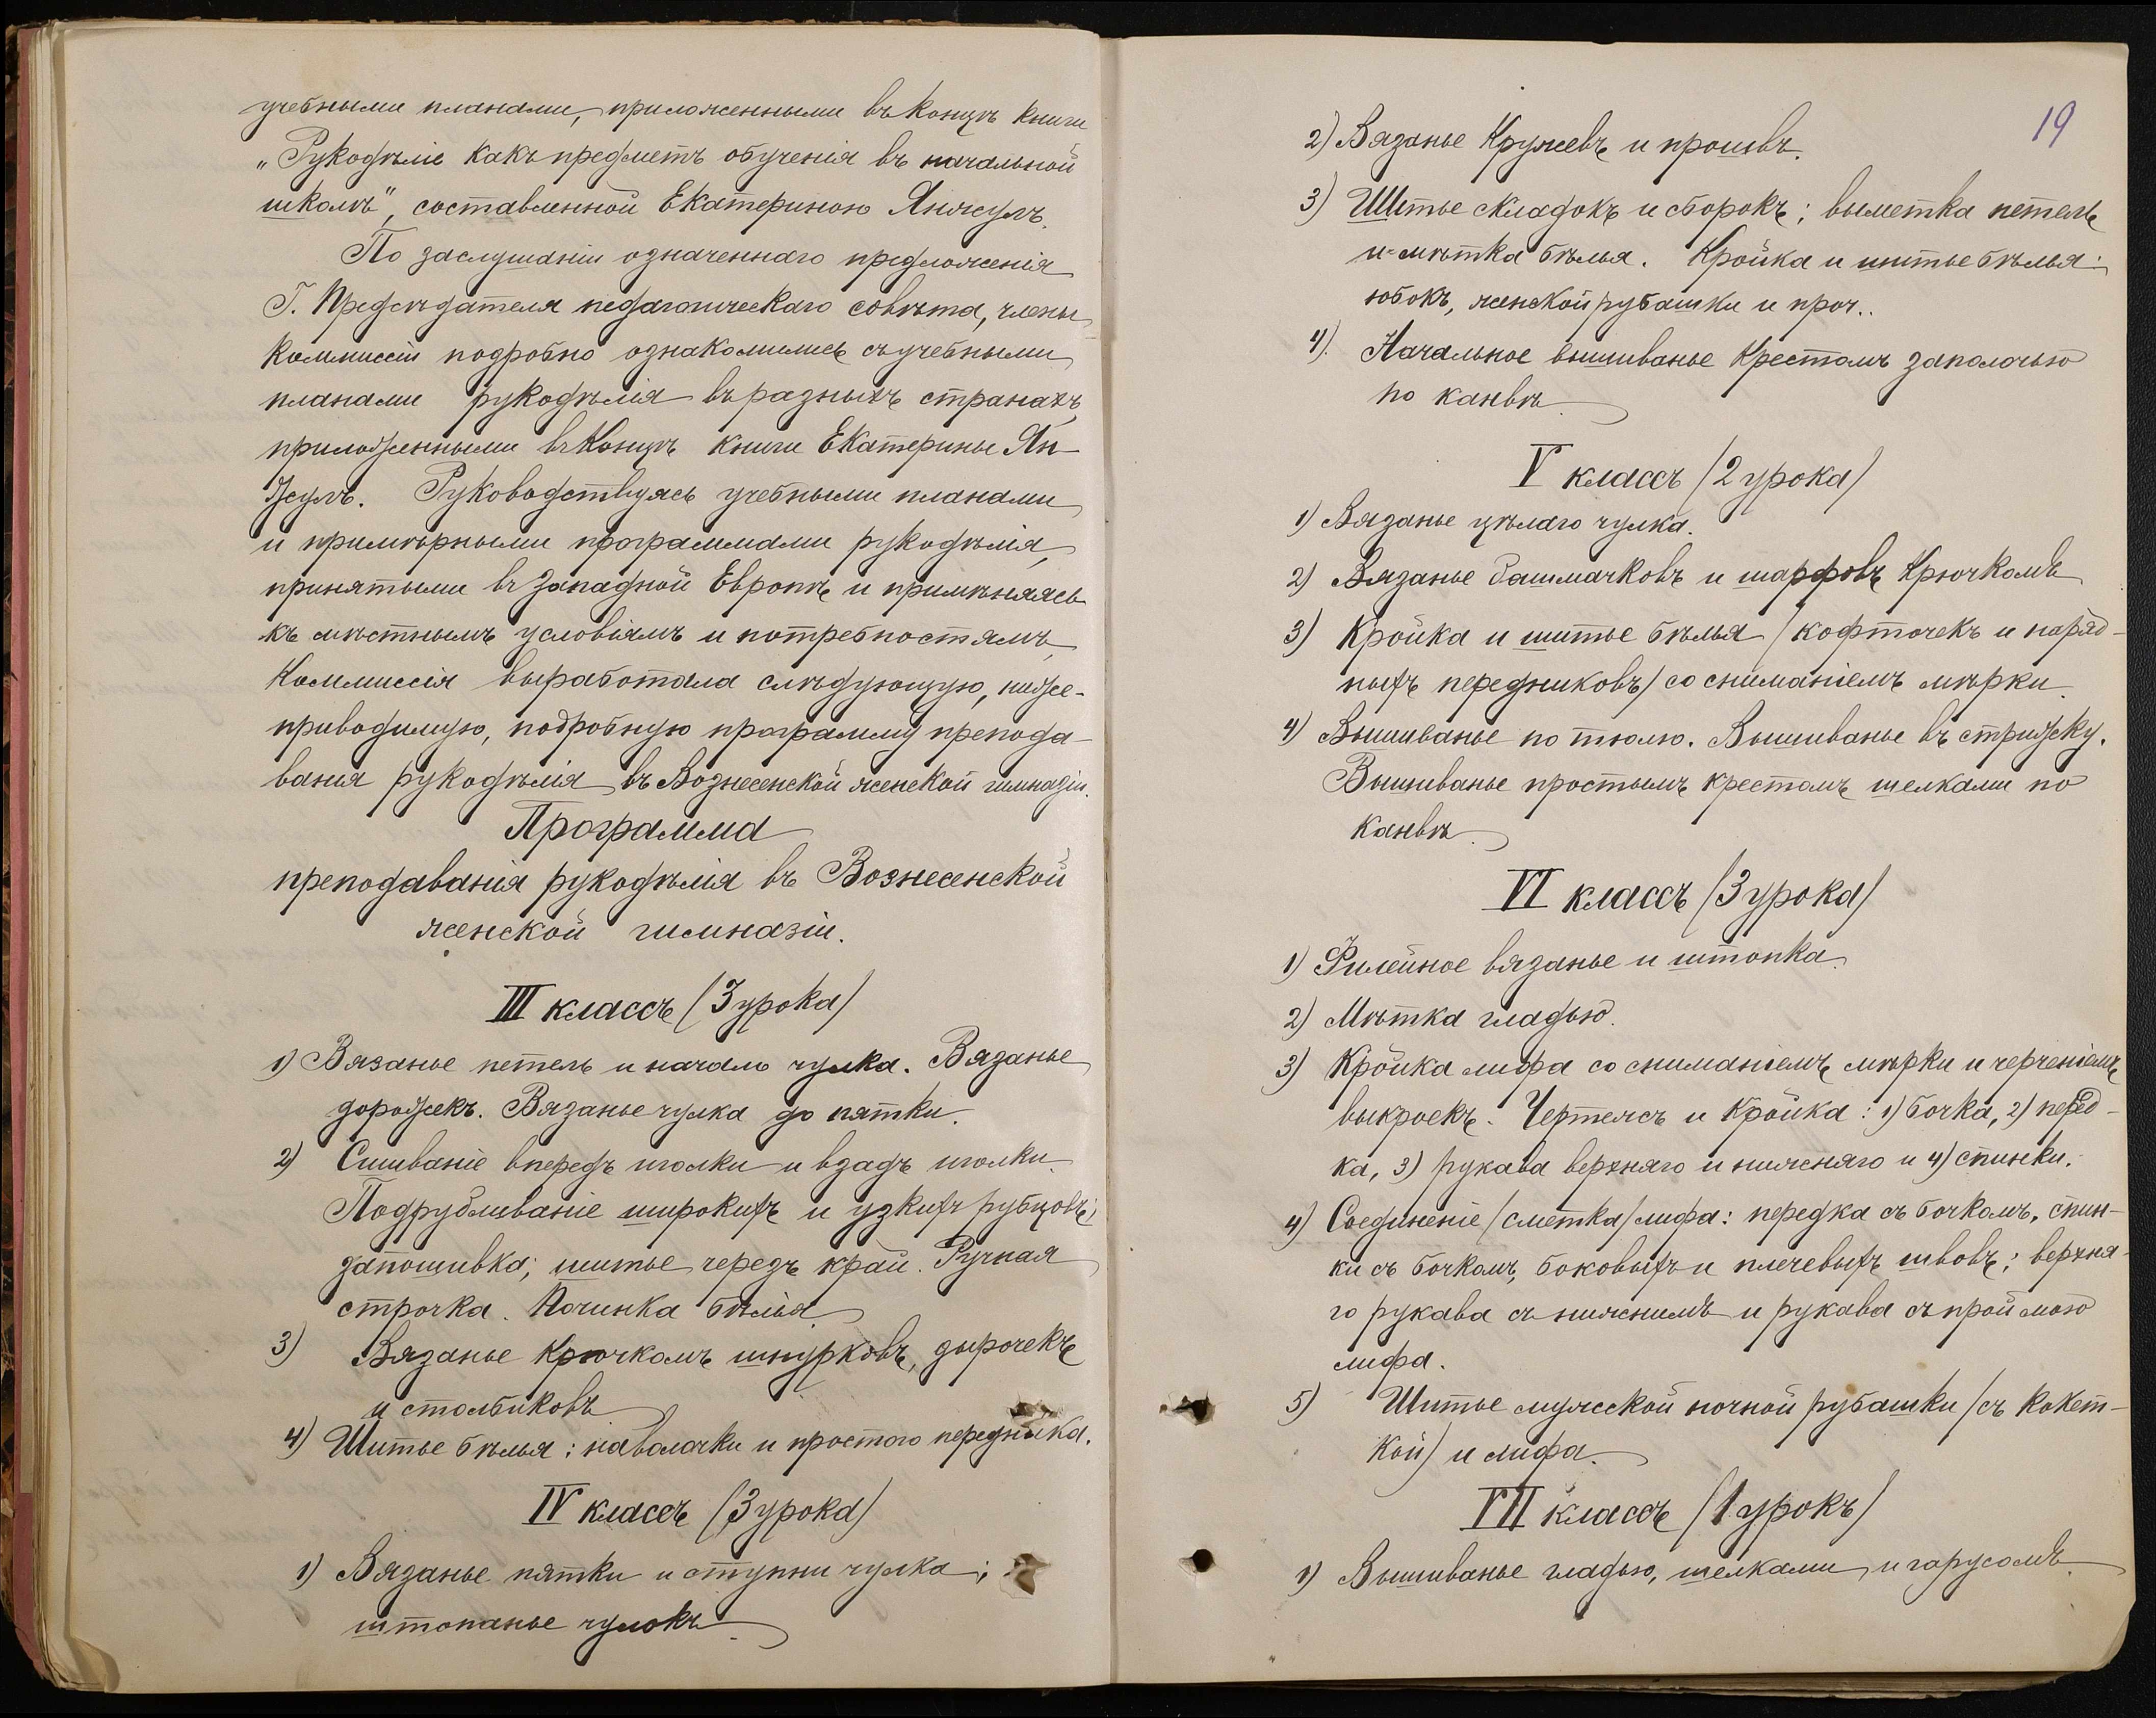 учебными планами, приложенными въ концѣ книги
„Рукодѣліе какъ предметъ обученія въ начальной
школѣ", составленной Екатериною Янжулъ.
По заслушаніи означеннаго предложенія
Г. Предсѣдателя педагогическаго совѣта, члены
коммиссіи подробно ознакомились съ учебными
планами рукодѣлія въ разныхъ странахъ,
приложенными въ концѣ книги Екатерины Ян-
жулъ. Руководствуясь учебными планами
и примѣрными программами рукодѣлія,
принятыми въ Западной Европѣ и примѣняясь
къ мѣстнымъ условіямъ и потребностямъ,
Коммиссія выработала слѣдующую, ниже-
приводимую, подробную программу препода-
ванія рукодѣлія въ Вознесенской женской гимназіи.
Программа
преподаванія рукодѣлія въ Вознесенской
женской гимназіи.
III классъ (3 урока)
1) Вязанье петель и начало чулка. Вязанье
дорожекъ. Вязанье чулка до пятки.
2) Сшиваніе впередъ иголки и взадъ иголки.
Подрубливаніе широкихъ и узкихъ рубцовъ;
запошивка; шитье черезъ край. Ручная
строчка. Починка бѣлья.
3) Вязанье крючкомъ шнурковъ, дырочекъ
и столбиковъ
4) Шитье бѣлья: наволочки и простого передника.
IV классъ (3 урока)
1) Вязанье пятки и ступни чулка;
штопанье чулокъ.
19
2) Вязанье кружевъ и прошвъ.
3) Шитье складокъ и сборокъ; выметка петель
и мѣтка бѣлья. Кройка и шитье бѣлья:
юбокъ, женской рубашки и проч..
4). Начальное вышиванье крестомъ заполочью
по канвѣ.
V классъ (2 урока)
1) Вязанье цѣлаго чулка.
2) Вязанье башмачковъ и шарфовъ крючкомъ
3) Кройка и шитье бѣлья (кофточекъ и наряд-
ныхъ передниковъ) со сниманіемъ мѣрки.
4) Вышиванье по тюлю. Вышиванье въ стрижку.
Вышиванье простымъ крестомъ шелками по
канвѣ.
VI классъ (3 урока)
1) Филейное вязанье и штопка.
2) Мѣтка гладью.
3) Кройка лифа со сниманіемъ мѣрки и черченіемъ
выкроекъ. Чертежъ и кройка: 1) бочка, 2) перед-
ка, 3) рукава верхняго и нижняго и 4) спинки.
4) Соединеніе (сметка) лифа: передка съ бочкомъ, спин-
ки съ бочкомъ, боковыхъ и плечевыхъ швовъ; верхня-
го рукава съ нижнимъ и рукава съ проймою
лифа.
5) Шитье мужской ночной рубашки (съ кокет-
кой) и лифа.
VII классъ (1 урокъ)
1) Вышиванье гладью, шелками и гарусомъ.